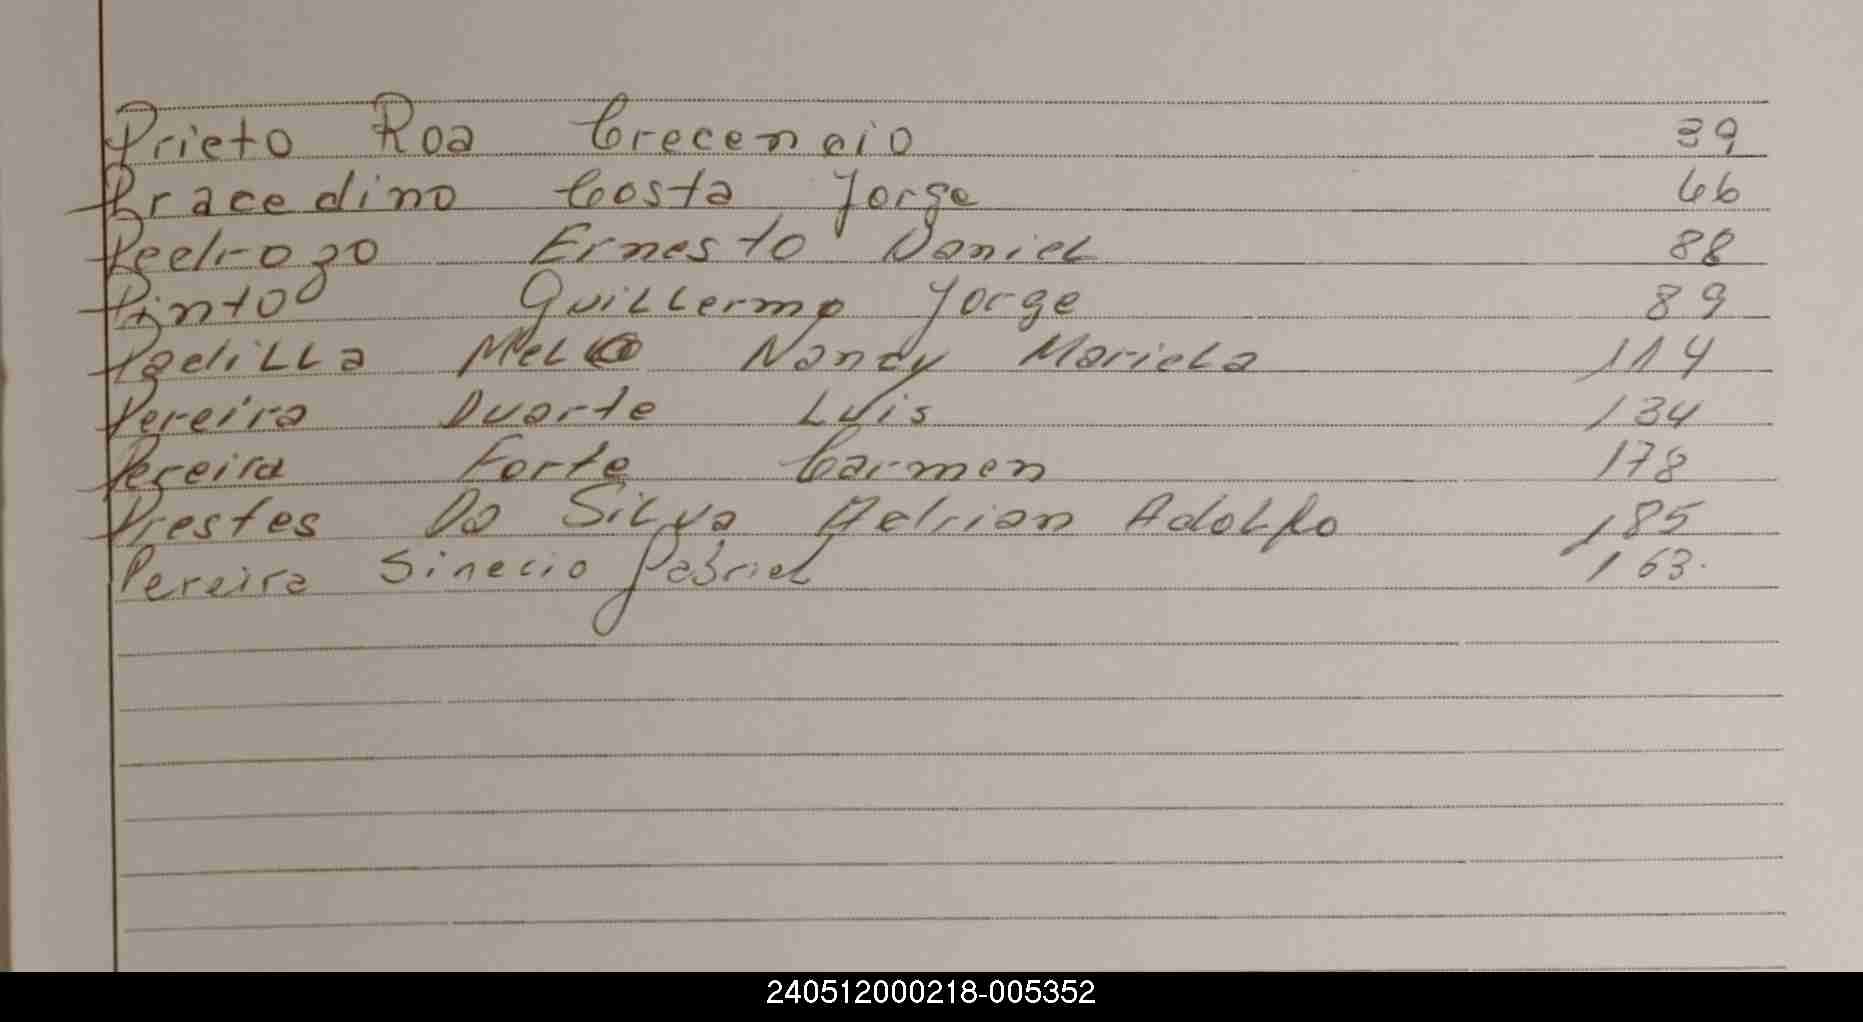 Prieto Roa Crecencio 39
Pracedino Costa Jorge 66
Pedrozo Ernesto Daniel 88
Pinto Guillermo Jorge 89
Padilla Mello Nancy Mariela 114
Pereira Duarte Luis 134
Pereira Forte Carmen 178
Prestes Da Silva Adrian Adolfo 185
Pereira Sinecio Gabriel 163.
240512000218-005352